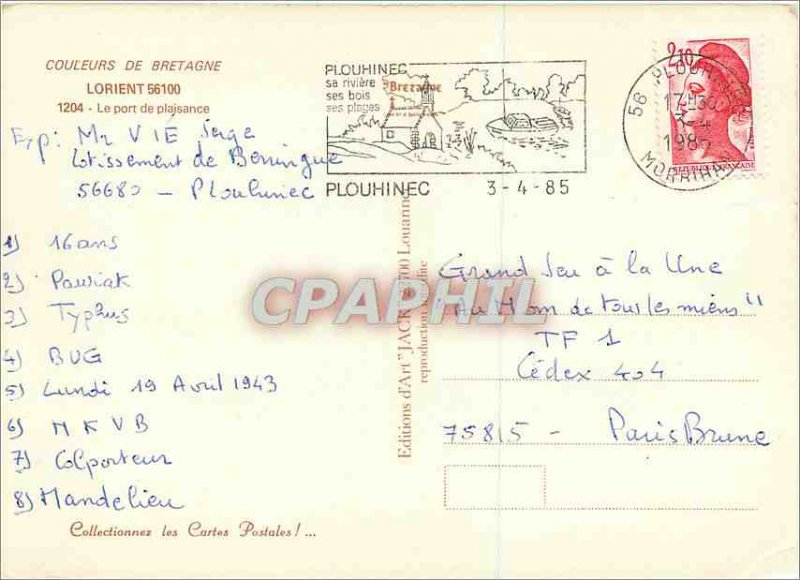 COULEURS DE BRETAGNE
LORIENT 56100
1204 - Le port de plaisance
Exp: Mr VIÉ Serge
Lotissement de Berringue
56680 - Plouhinec
1) 16 ans
2) Pawiak
3) Typhus
4) BUG
5) Lundi 19 Avril 1943
6) NKVD
7) Colporteur
8) Mandelieu
Collectionnez les Cartes Postales! ...
PLOUHINEC
sa rivière
ses bois
ses plages
Bretagne
PLOUHINEC 3-4-85
2,10
56 PLOUHINEC
17H30
3-4
1985
MORBIHAN
REPUBLIQUE FRANÇAISE
Editions d'Art "JACK" 700 Louannec
reproduction interdite
CPAPHIL
Grand Jeu à la Une
"Au Nom de tous les miens"
TF 1
Cédex 404
75815 - Paris Brune